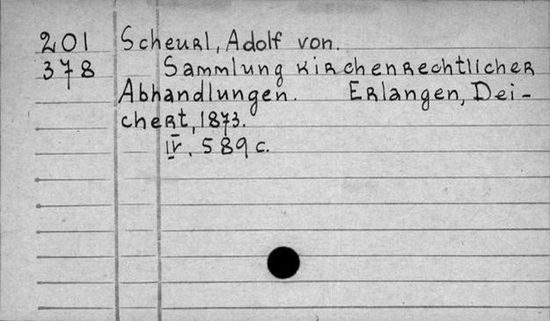 201 Scheurl, Adolf von.
378 Sammlung kirchenrechtlicher
Abhandlungen. Erlangen, Dei-
chert, 1873.
IV, 589 c.